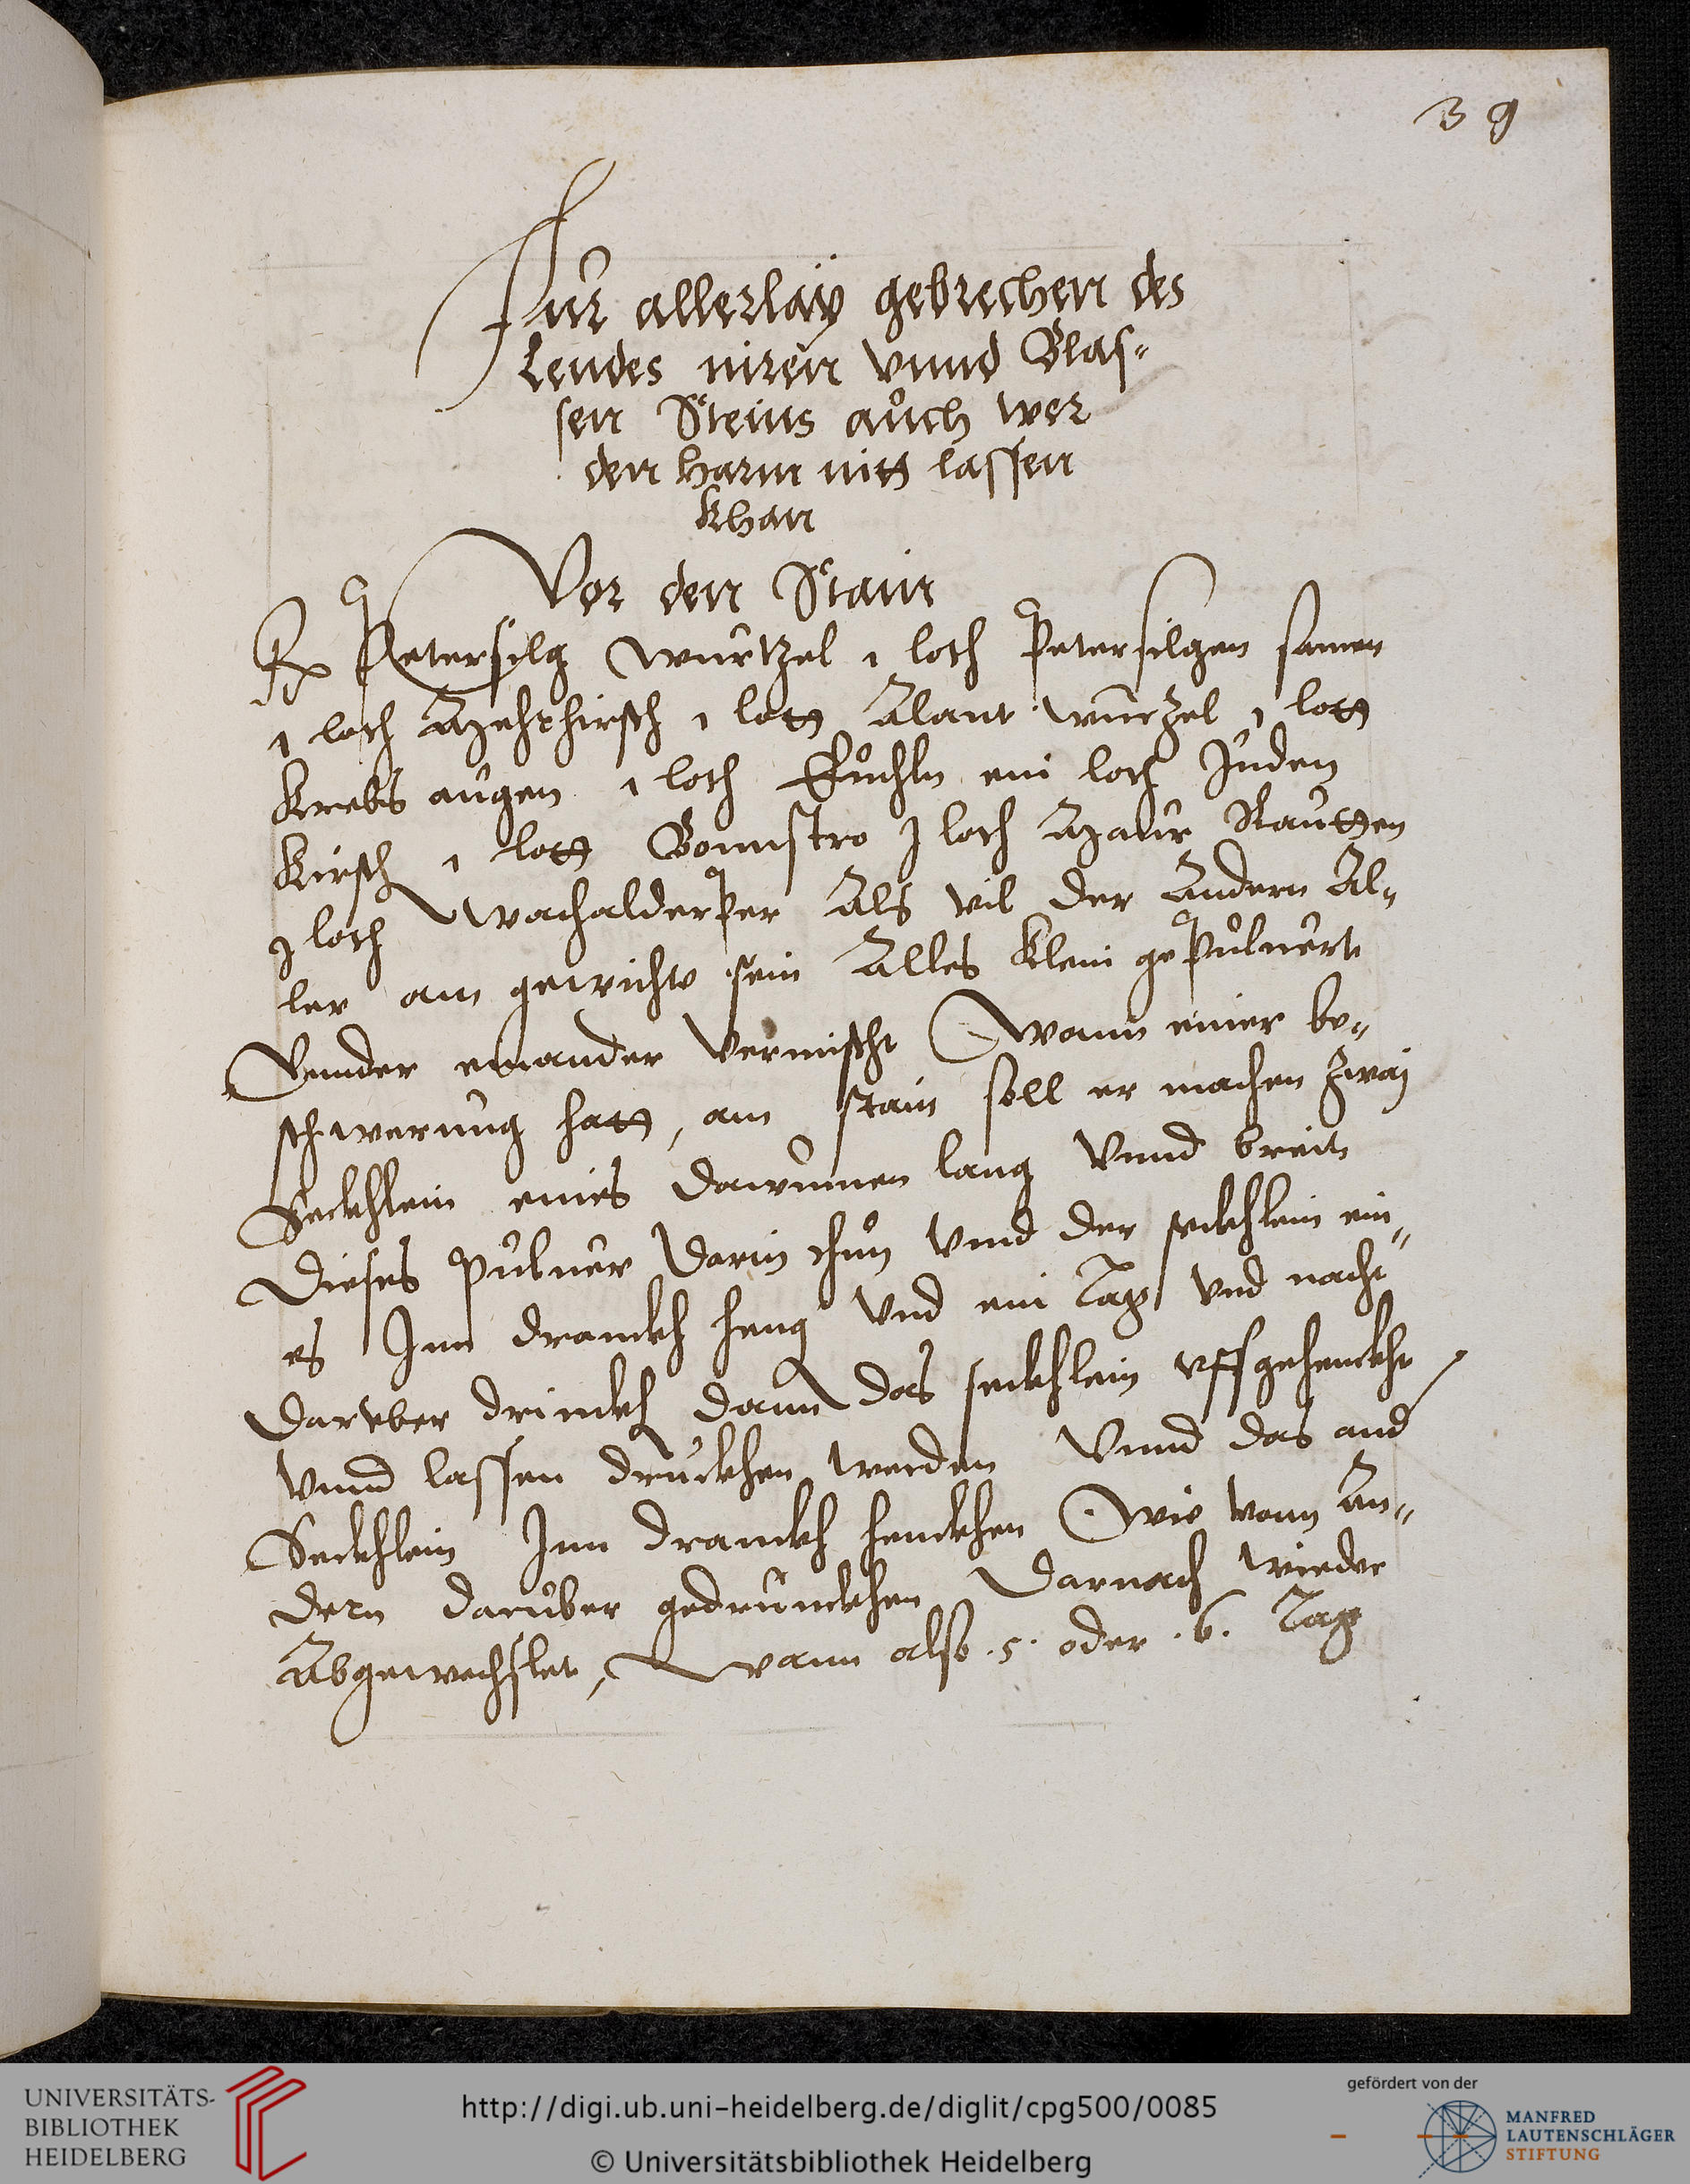 39
Fur allerlaÿ gebrechen des
Lendes niren vnnd Blas=
sen Steins auch wer
den harm nitt lassen
khan
Vor den Stain
Rx Petersilg wurtzel 1 loth Petersilgen samen
1 loth 1 lott Alant wurzel 1 lott
Krebs augen 1 loth ein loth Juden
Kirsch 1 lott Bonnstro j loth Rautten
j loth Wachalderper Als vil der Andern Al=
ler am gewicht sein Alles klein gepuluert
Vnnder einander vermischt Wann einer be=
schwerung hatt, am stain soll er machen zwaj
Seckhlein eines lang vnnd breit
Dieses Puluer darin thun vnnd der seckhlein ein=
es Inn dranckh heng vnd ein Tag vnd nacht
darvber drinckh dann das seckhlein vffgehenckht
vnnd lassen druckhen werden Vnnd das and
Seckhlein Inn dranckh henckhen Wie vom An=
dern daruber gedrunckhen Darnach wieder
Abgewechslet, Wann also .5. oder .6. Tag
UNIVERSITÄTS-
BIBLIOTHEK
HEIDELBERG
http://digi.ub.uni-heidelberg.de/diglit/cpg500/0085
© Universitätsbibliothek Heidelberg
gefördert von der
MANFRED
LAUTENSCHLÄGER
STIFTUNG